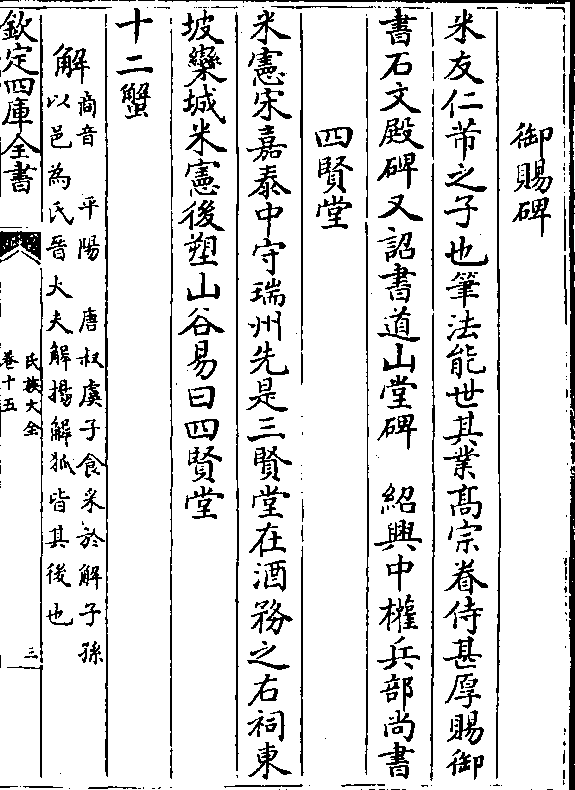 御賜碑
米友仁芾之子也筆法能世其業髙宗眷侍甚厚賜御
書石文殿碑又詔書道山堂碑　紹興中權兵部尚書
四賢堂
米憲宋嘉泰中守瑞州先是三賢堂在酒務之右祠東
坡欒城米憲後塑山谷易曰四賢堂
十二蟹
解
商音　平陽　唐叔虞子食采於解子孫
以邑為氏晉大夫解揚解狐皆其後也
欽定四庫全書
氏族大全
卷十五
三